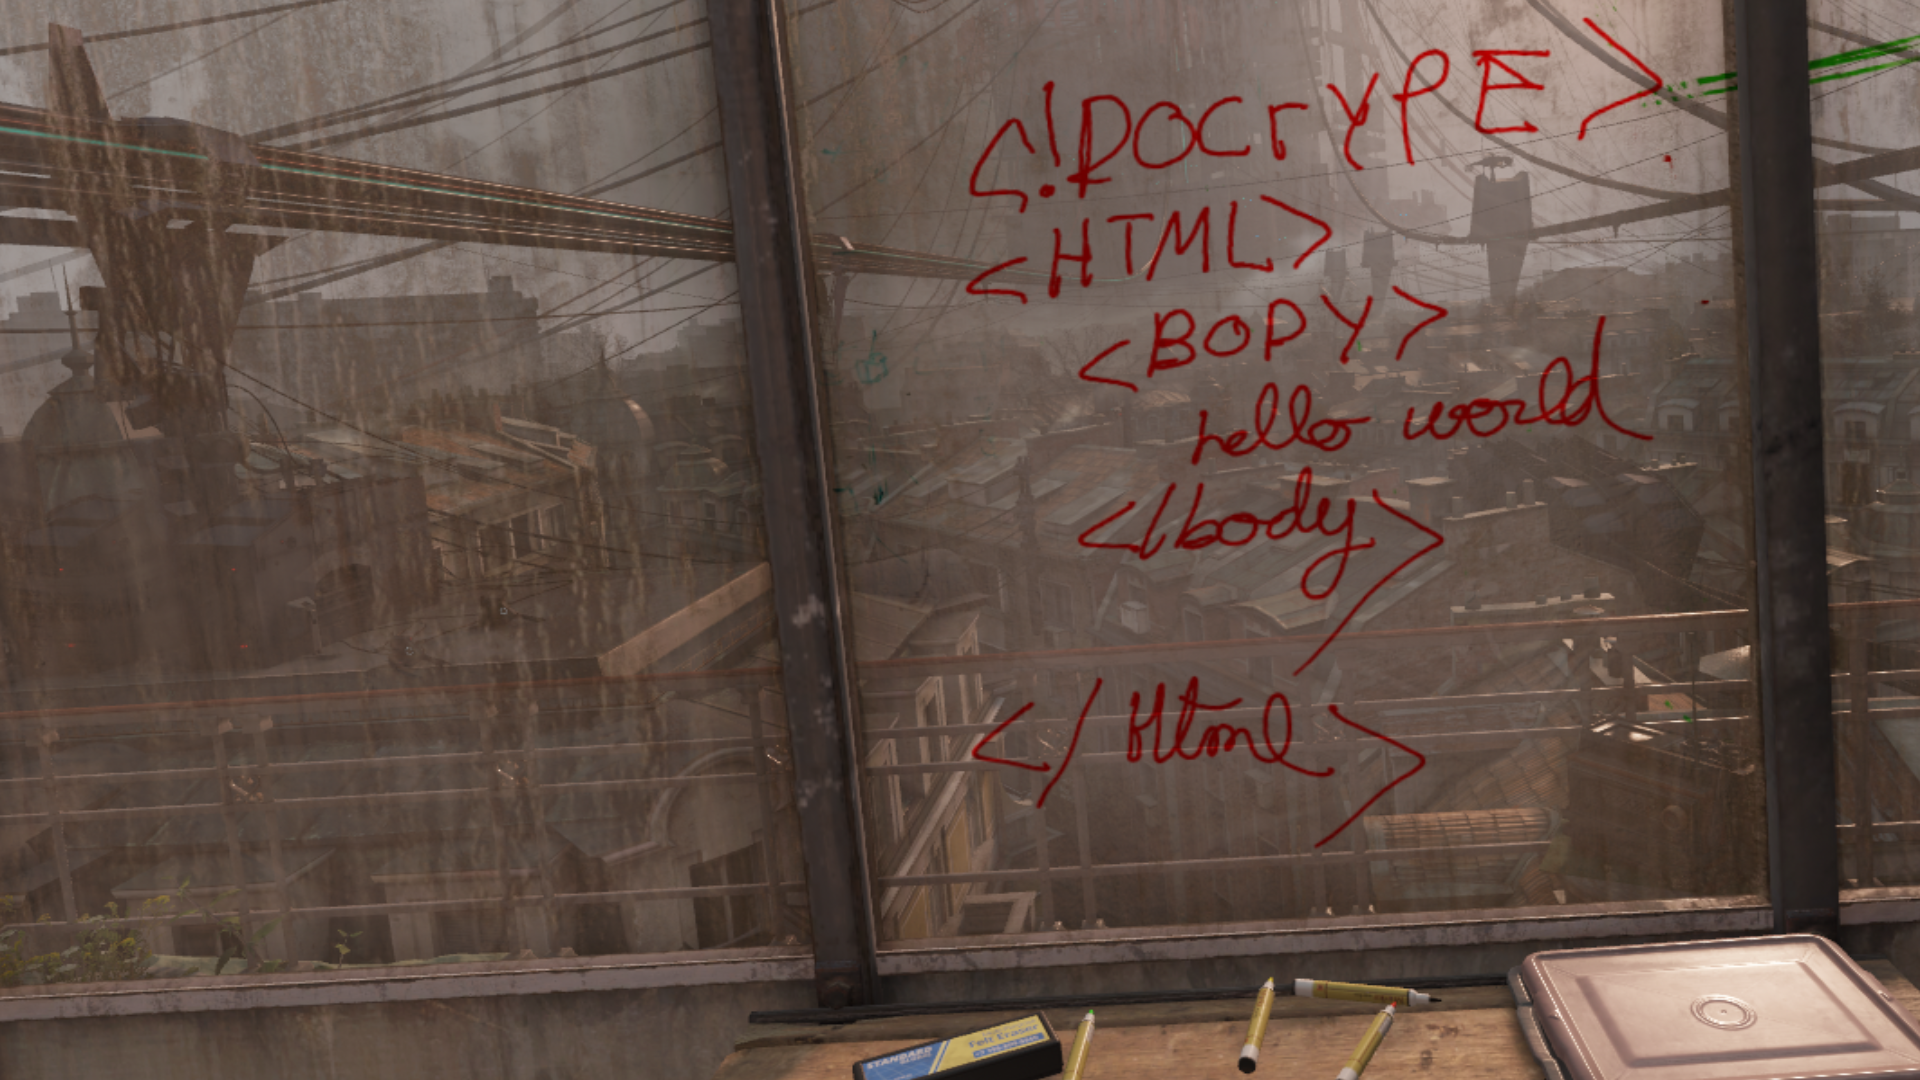 <!DOCTYPE>
<HTML>
<BODY>
hello world
</body>
</Html>
STANDARD
Felt Eraser